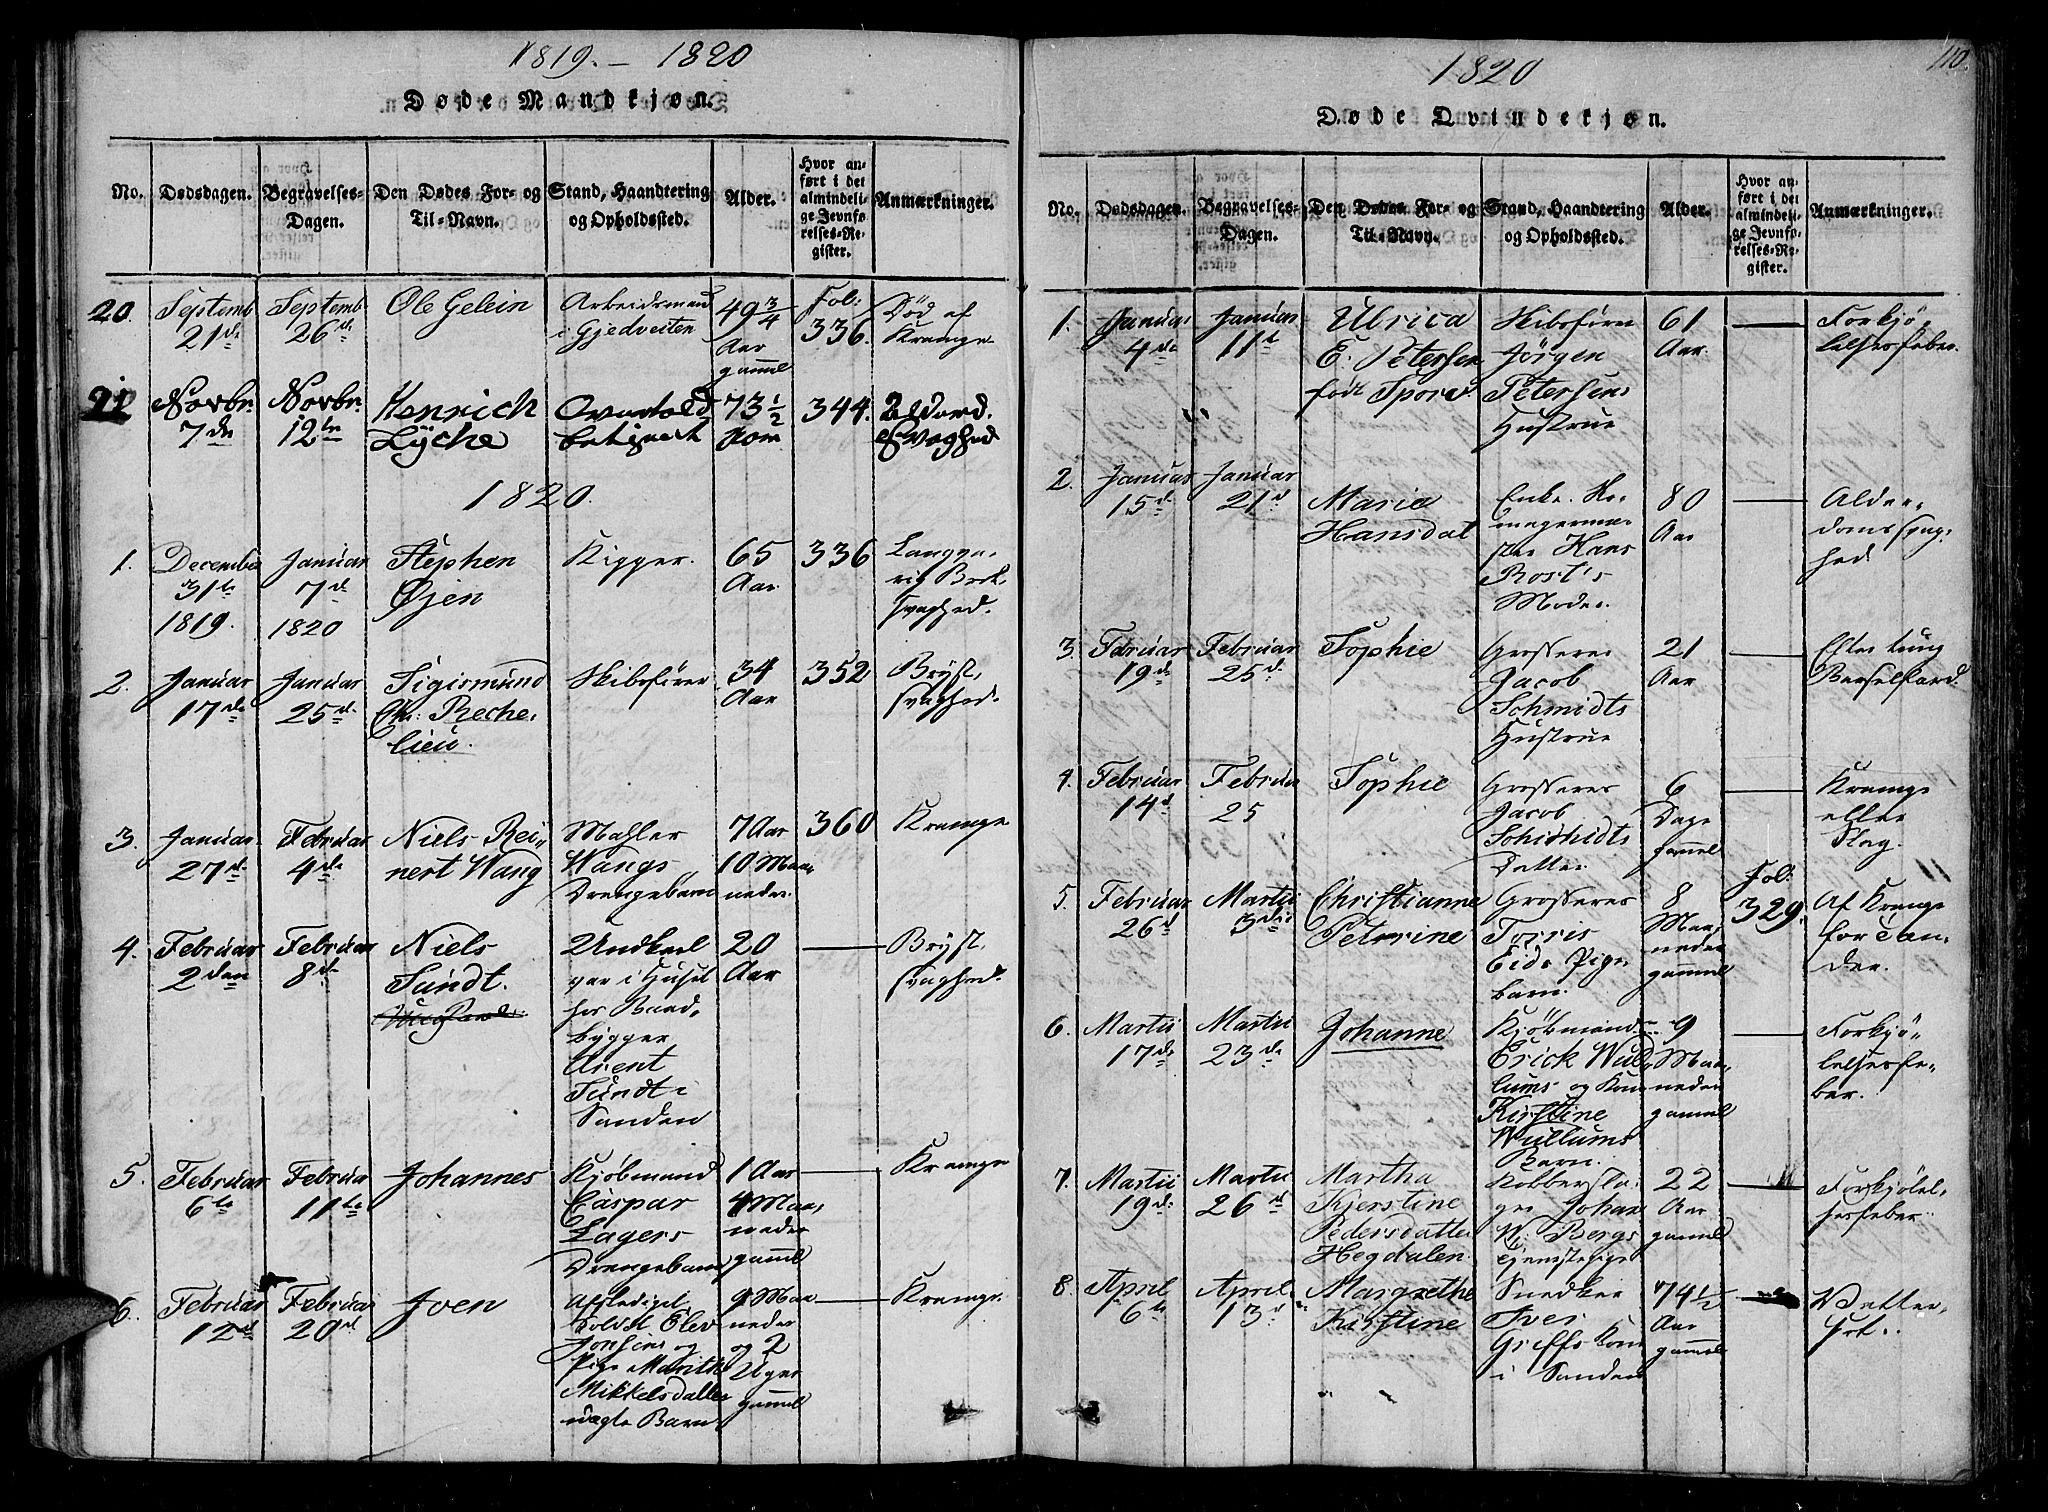 1819. – 1820
Døde Mandkjøn.
No.
Dødsdagen.
Begravelses-
Dagen.
Den Dødes For- og
Til-Navn.
Stand, Haandtering
og Opholdssted.
Alder.
Hvor an-
ført i det
almindeli-
ge Jevnfø-
relses-Re-
gister.
Anmærkninger.
20.
Septemb
21de
Septemb
26de
Ole Gelein
Arbeidsmand
i Gjedveiten
49 3/4
Aar
gamel
Fol:
336.
Død af
Krampe
21
Novbr.
7de
Novbr.
12te
Henrich
Lyche
73 1/2
344.
Alderd.
Svaghed
1820.
1.
December
31te
1819.
Januar
7de
1820
Stephen
Øjen
Kipper.
65
Aar
336
svaghed.
2.
Januar
17de
Januar
25de
Sigismund
Chr: Reche,
lieu.
Skibsfører
34
Aar
352
Bryst,
svaghed.
3.
Januar
27de
Februar
4de
Niels Rei,
nert Wang
Mahler
Wangs
Drengebarn
7 Aar
10 Maa,
neder.
360
Krampe
4.
Februar
2den
Februar
8de
Niels
Sundt.
Undkarl
var i Huset
hos Bund,
bygger
Arent
Sundt i
Sanden
20
Aar
Bryst,
svaghed.
5.
Februar
6te
Februar
11te
Johannes
Kjøbmand
Caspar
Lagers
Drengebarn
1 Aar
4 Maa,
neder
gamel
Krampe
6.
Februar
12te
Februar
20de
Joen
Afskediget
Soldt Olev
Jonsens og
Pige Marithe
Mikkelsdatter
uægte Barn
9 Maa
neder
og 2
Uger
gammel
Krampe.
1820
110.
Døde Qvindekjøn.
No.
Dødsdagen.
Begravelses-
Dagen.
Den Dødes For- og
Til-Navn.
Stand, Haandtering
og Opholdssted.
Alder.
Hvor an-
ført i det
almindeli-
ge Jevnfø-
relses-Re-
gister.
Anmærkninger.
1.
Januar
4de
Januar
11te
Ulrica
E. Petersen
født Sporn
Skibsfører
Jörgen
Petersens
Hustrue
61
Aar.
Forkjö,
lelsesfeber.
2.
Januar
15de
Januar
21de
Maria
Hansdat
Enke.
Hans
Rost's
Moder.
80
Aar
Alder,
domssvag,
hed
3.
Februar
19de
Februar
25de
Sophie
Grosserer
Jacob
Schmidts
Hustrue
21
Aar
Efter tung
Barselfærd.
4.
Februar
14de
Februar
25
Sophie
Grosserer
Jacob
Schmidts
Datter
6
Dage
gamel
Krampe
eller
Slag.
5.
Februar
26de
Martii
3die
Christianne
Petrine
Grosserer
Torris
Eide Pige,
barn.
8
Maa,
neder
gammel
Fol:
329.
Af Krampe
for Tæn,
der.
6.
Martii
17de
Martii
23de
Johanne
Kjöbmand
Erick Wul,
lums og Kone
Kirstine
Wullums
Barn.
9
Maa,
neder
gamel
Forkjö,
lelsesfe,
ber.
7.
Martii
19de
Martii
26de
Martha
Kjerstine
Pedersdatter
Hegdalen.
Kobbersla,
ger Johan
W: Bergs
Tjenestepige
22
Aar
gamel
Forkjölel,
sesfeber.
8.
April
6te
April.
13de
Margrethe
Kirstine
Snedker
Iver
Griffs Kone
i Sanden
74 1/2
Aar
gammel
Vatter,
sot.